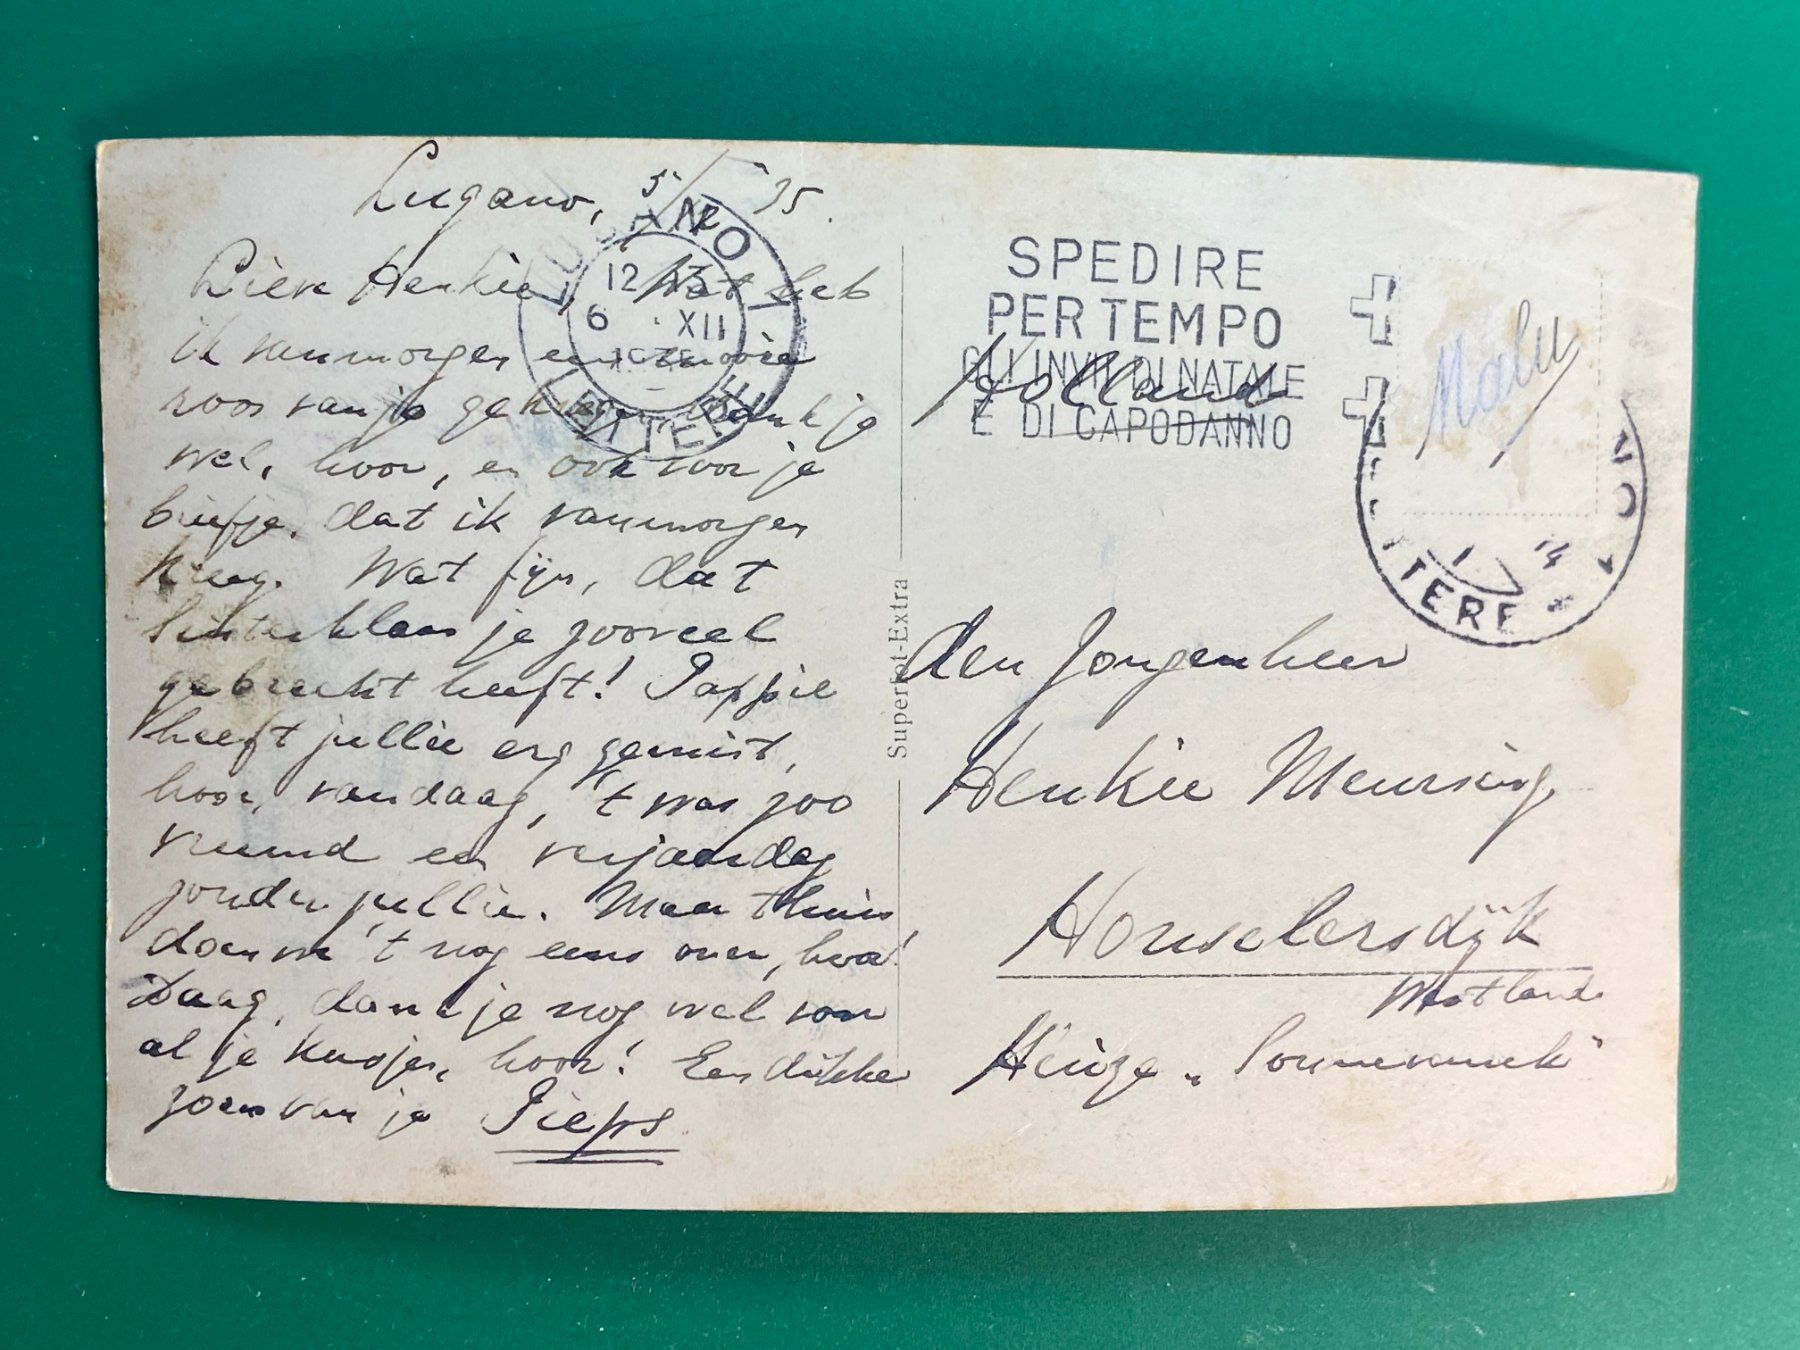 Lugano, 5/12 '35.
Lieve Henkie, Wat heb
ik vanmorgen een mooie
roos van je gekregen, dank je
wel, hoor, en ook voor je
briefje, dat ik vanmorgen
kreeg. Wat fijn, dat
Sinterklaas je zooveel
gebracht heeft! Pappie
heeft jullie erg gemist,
hoor, vandaag, 't was zoo
vreemd een verjaardag
zonder jullie. Maar thuis
doen we 't nog eens over, hoor!
Daag, dank je nog wel voor
al je kusjes, hoor! Een dikke
zoen van je Pieps
LUGANO 1
12-13
6 XII
LETTERE
Superfot-Extra
SPEDIRE
PER TEMPO
GLI INVII DI NATALE
E DI CAPODANNO
Holland
Malu
NO 1
TERE
den Jongenheer
Henkie Meursing,
Honselersdijk
Westland
Huize "Sonnevanck"